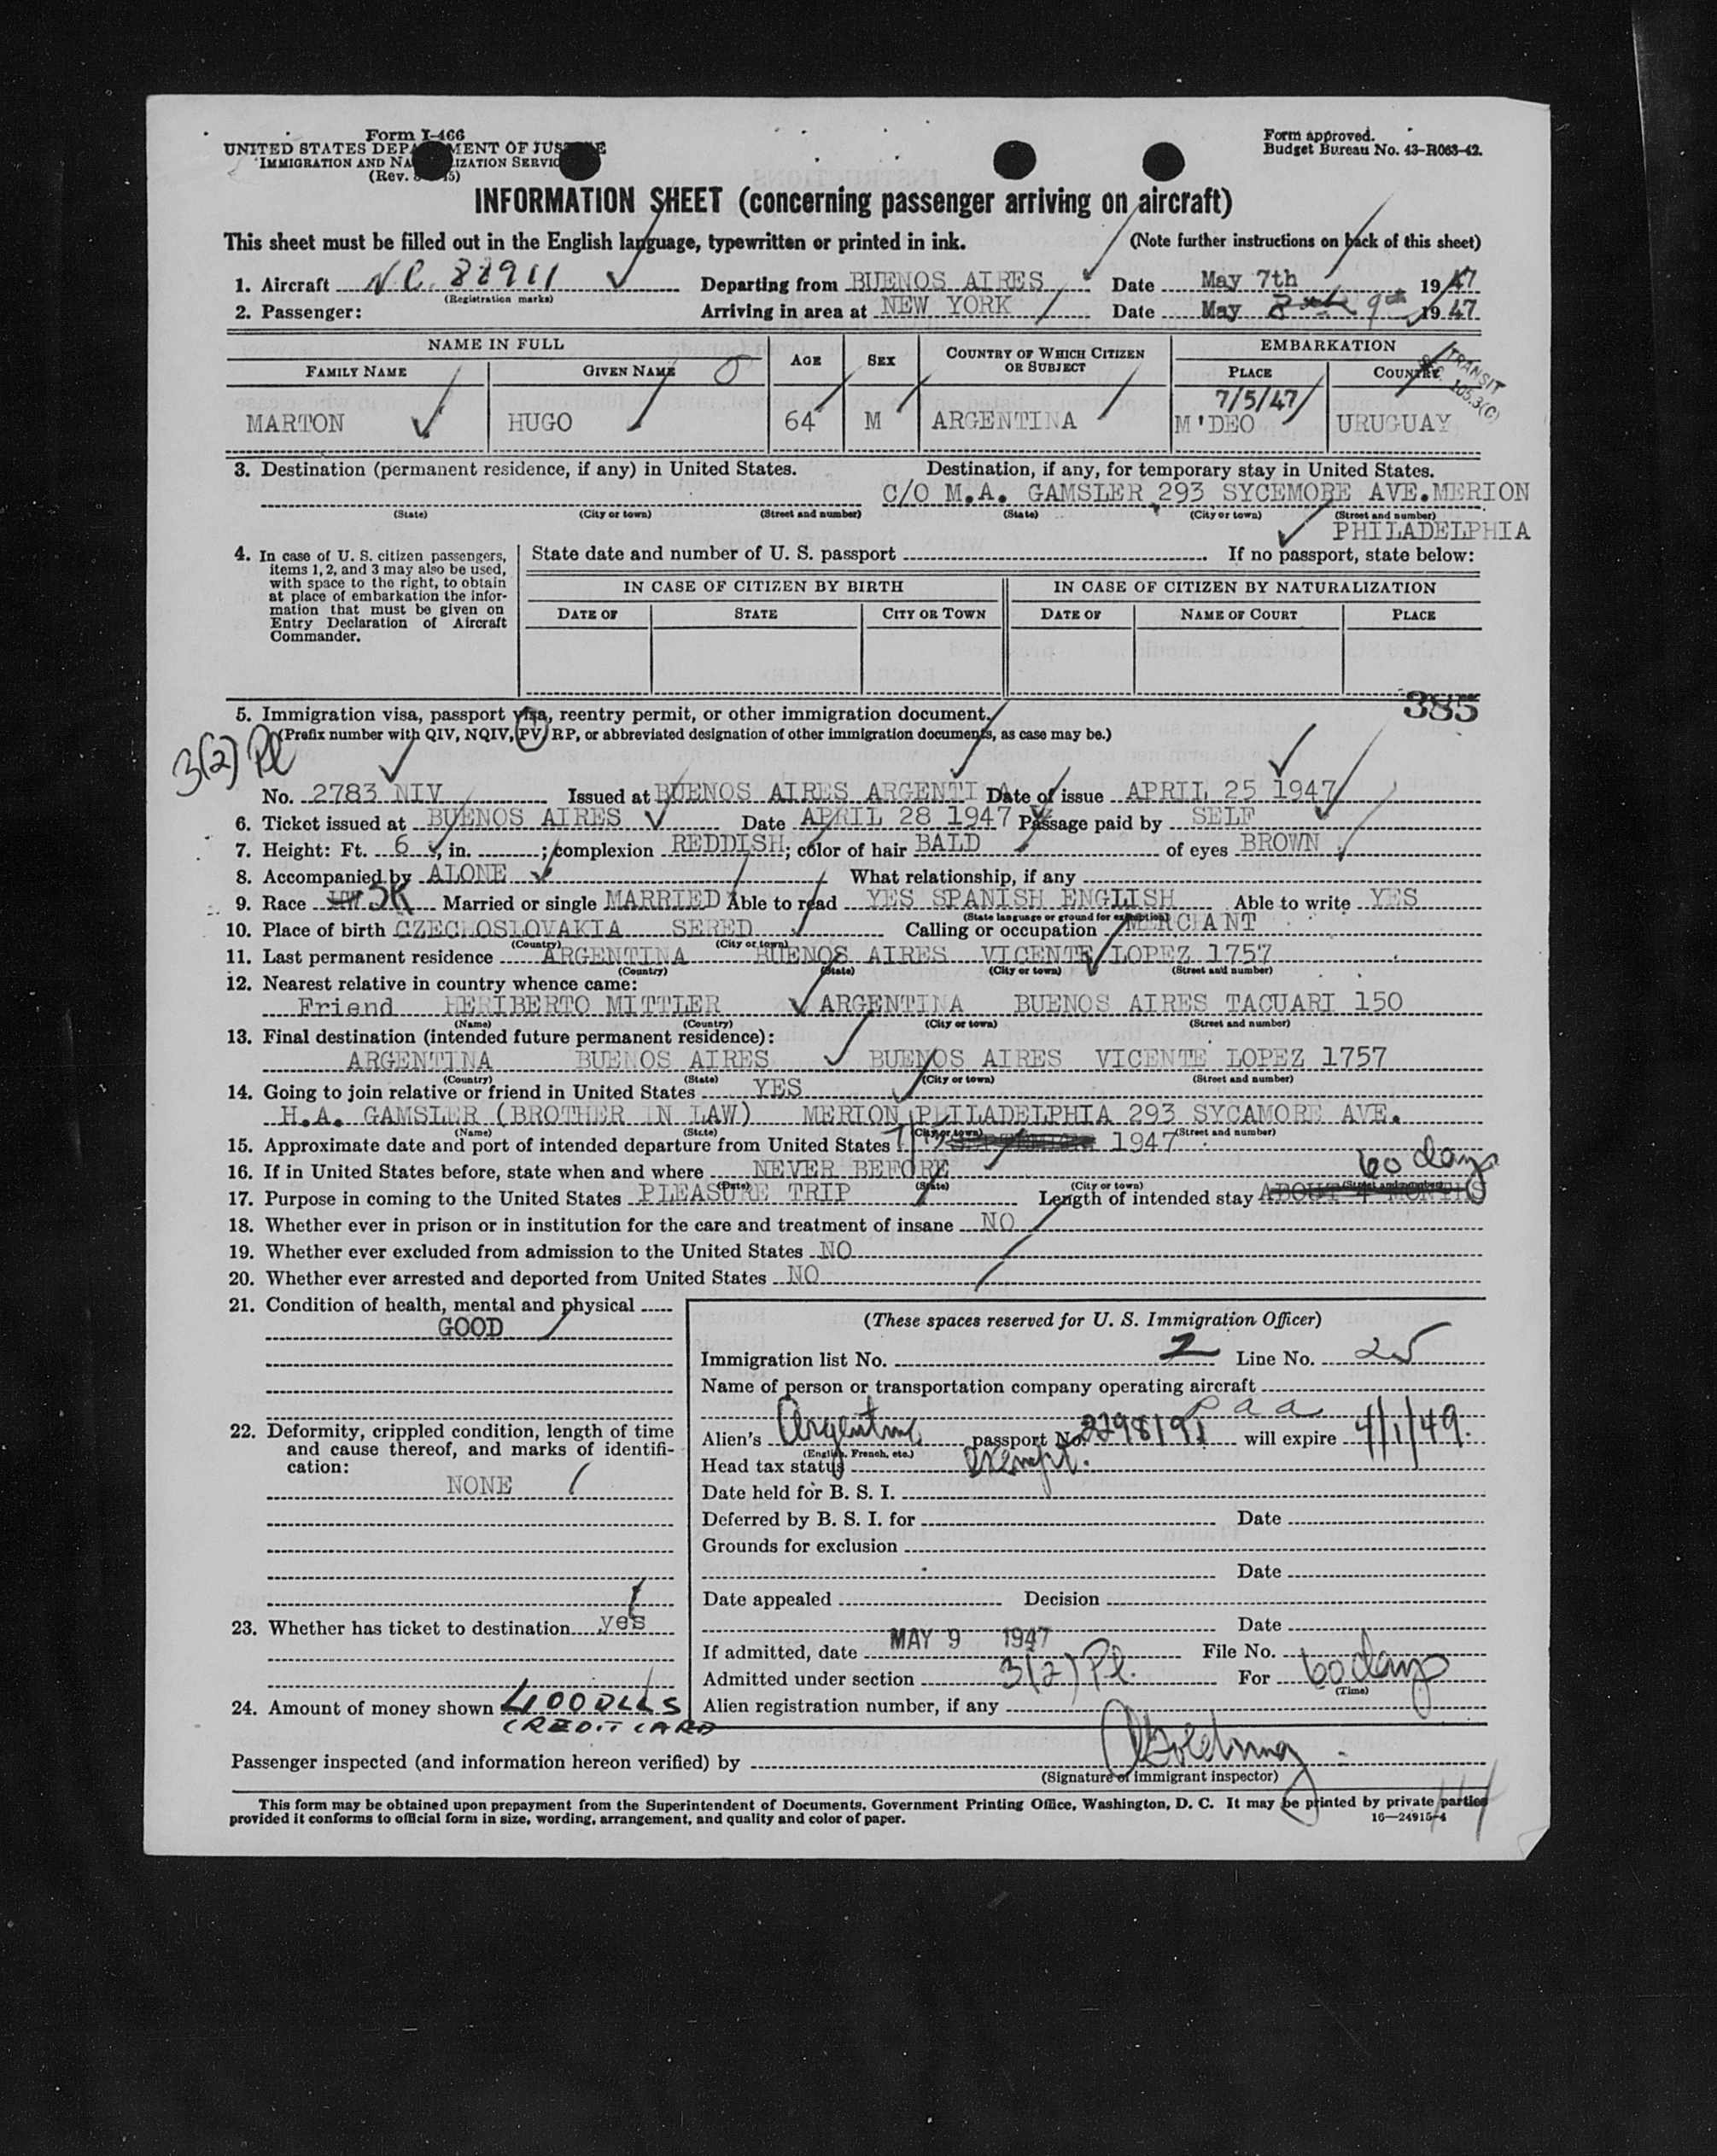 Form I-466
UNITED STATES DEPARTMENT OF JUSTICE
IMMIGRATION AND NATURALIZATION SERVICE
(Rev.
Form approved.
Budget Bureau No. 43-R063-42.
INFORMATION SHEET (concerning passenger arriving on aircraft)
This sheet must be filled out in the English language, typewritten or printed in ink. (Note further instructions on back of this sheet)
1. Aircraft N.C. 88911 Departing from BUENOS AIRES Date May 7th 1947
(Registration marks)
2. Passenger: Arriving in area at NEW YORK Date May 9th 1947
NAME IN FULL AGE SEX COUNTRY OF WHICH CITIZEN OR SUBJECT EMBARKATION
FAMILY NAME GIVEN NAME PLACE COUNTRY
TRANSIT
105.3(C)
7/5/47
MARTON HUGO 64 M ARGENTINA M'DEO URUGUAY
3. Destination (permanent residence, if any) in United States. Destination, if any, for temporary stay in United States.
C/O M.A. GAMSLER 293 SYCEMORE AVE.MERION
(State) (City or town) (Street and number) (State) (City or town) (Street and number)
PHILADELPHIA
4. In case of U. S. citizen passengers, items 1, 2, and 3 may also be used, with space to the right, to obtain at place of embarkation the information that must be given on Entry Declaration of Aircraft Commander.
State date and number of U. S. passport If no passport, state below:
IN CASE OF CITIZEN BY BIRTH IN CASE OF CITIZEN BY NATURALIZATION
DATE OF STATE CITY OR TOWN DATE OF NAME OF COURT PLACE
385
5. Immigration visa, passport visa, reentry permit, or other immigration document.
(Prefix number with QIV, NQIV, PV, RP, or abbreviated designation of other immigration documents, as case may be.)
3(2) Pl
No. 2783 NIV Issued at BUENOS AIRES ARGENTI A Date of issue APRIL 25 1947
6. Ticket issued at BUENOS AIRES Date APRIL 28 1947 Passage paid by SELF
7. Height: Ft. 6, in. ; complexion REDDISH; color of hair BALD of eyes BROWN
8. Accompanied by ALONE What relationship, if any
9. Race SK Married or single MARRIED Able to read YES SPANISH ENGLISH Able to write YES
(State language or ground for exemption)
10. Place of birth CZECHOSLOVAKIA SERED Calling or occupation MERCHANT
(Country) (City or town)
11. Last permanent residence ARGENTINA BUENOS AIRES VICENTE LOPEZ 1757
(Country) (State) (City or town) (Street and number)
12. Nearest relative in country whence came:
Friend HERIBERTO MITTLER ARGENTINA BUENOS AIRES TACUARI 150
(Name) (Country) (City or town) (Street and number)
13. Final destination (intended future permanent residence):
ARGENTINA BUENOS AIRES BUENOS AIRES VICENTE LOPEZ 1757
(Country) (State) (City or town) (Street and number)
14. Going to join relative or friend in United States YES
H.A. GAMSLER (BROTHER IN LAW) MERION PHILADELPHIA 293 SYCAMORE AVE.
(Name) (State) (City or town) (Street and number)
15. Approximate date and port of intended departure from United States SEPTEMBER 1947
16. If in United States before, state when and where NEVER BEFORE
60 days
(Date) (State) (City or town) (Street and number)
17. Purpose in coming to the United States PLEASURE TRIP Length of intended stay ABOUT 4 MONTHS
18. Whether ever in prison or in institution for the care and treatment of insane NO
19. Whether ever excluded from admission to the United States NO
20. Whether ever arrested and deported from United States NO
21. Condition of health, mental and physical
GOOD
22. Deformity, crippled condition, length of time and cause thereof, and marks of identification:
NONE
23. Whether has ticket to destination yes
24. Amount of money shown 400 DLLS
CREDIT CARD
(These spaces reserved for U. S. Immigration Officer)
Immigration list No. 2 Line No. 25
Name of person or transportation company operating aircraft
P a a
Alien's Argentine passport No. 2298191 will expire 4/1/49.
(English, French, etc.)
Head tax status exempt.
Date held for B. S. I.
Deferred by B. S. I. for Date
Grounds for exclusion
Date
Date appealed Decision
Date
If admitted, date MAY 9 1947 File No.
Admitted under section 3(2) Pl. For 60 days
(Time)
Alien registration number, if any
Passenger inspected (and information hereon verified) by
(Signature of immigrant inspector)
This form may be obtained upon prepayment from the Superintendent of Documents, Government Printing Office, Washington, D. C. It may be printed by private parties
provided it conforms to official form in size, wording, arrangement, and quality and color of paper. 16—24915-4